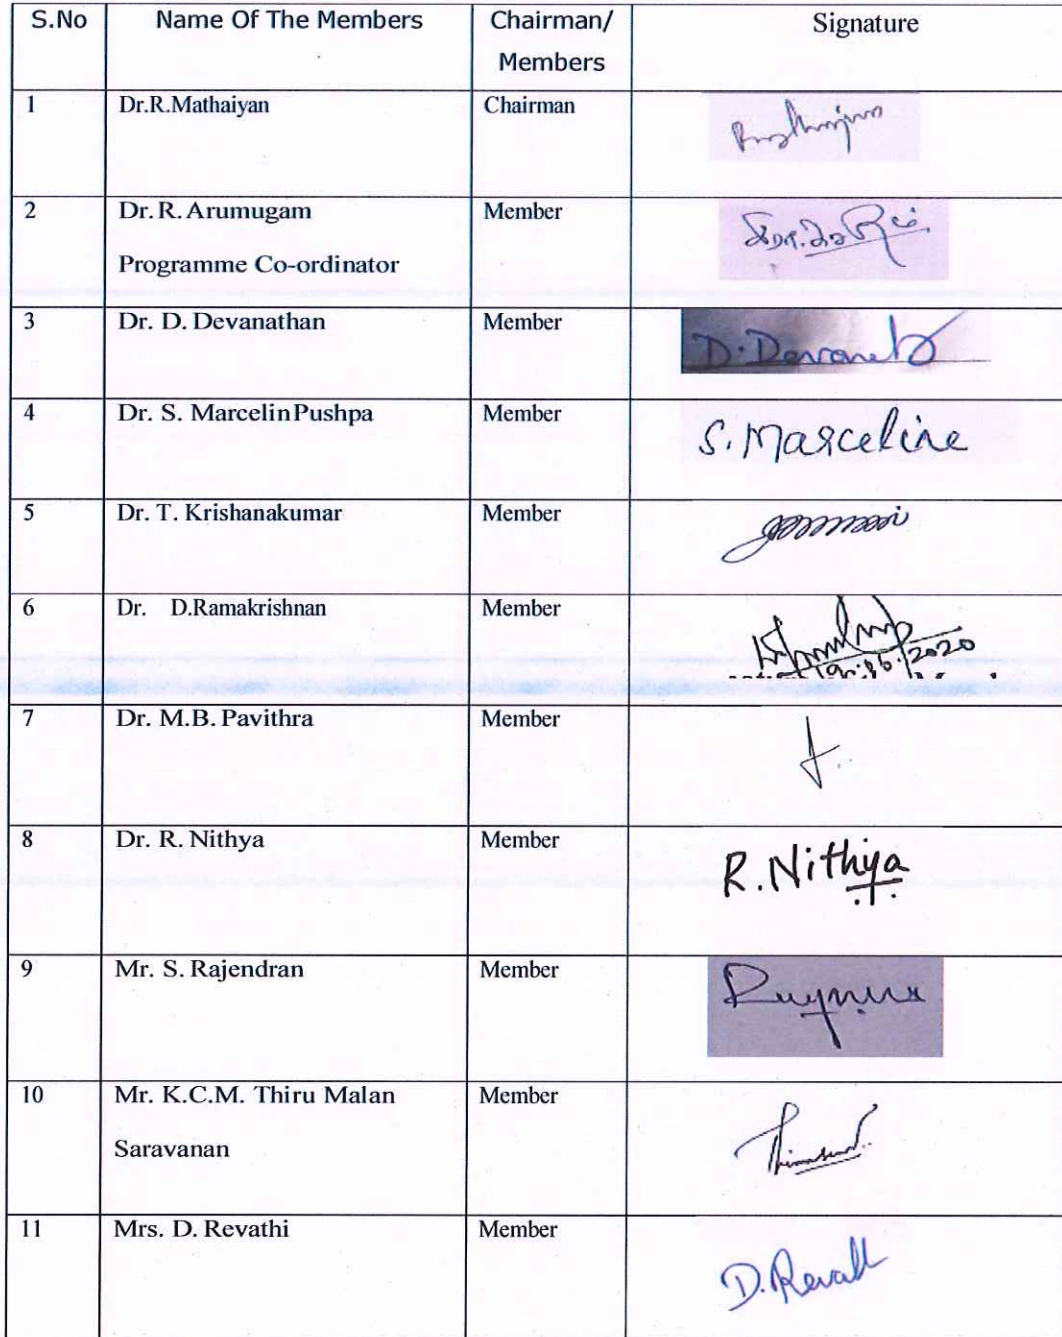 S.No Name Of The Members Chairman/ Members Signature
1 Dr.R.Mathaiyan Chairman
2 Dr. R. Arumugam Member
Programme Co-ordinator
3 Dr. D. Devanathan Member
4 Dr. S. Marcelin Pushpa Member S. Marceline
5 Dr. T. Krishanakumar Member
6 Dr. D.Ramakrishnan Member
2020
7 Dr. M.B. Pavithra Member
8 Dr. R. Nithya Member R. Nithya
9 Mr. S. Rajendran Member
10 Mr. K.C.M. Thiru Malan Member
Saravanan
11 Mrs. D. Revathi Member